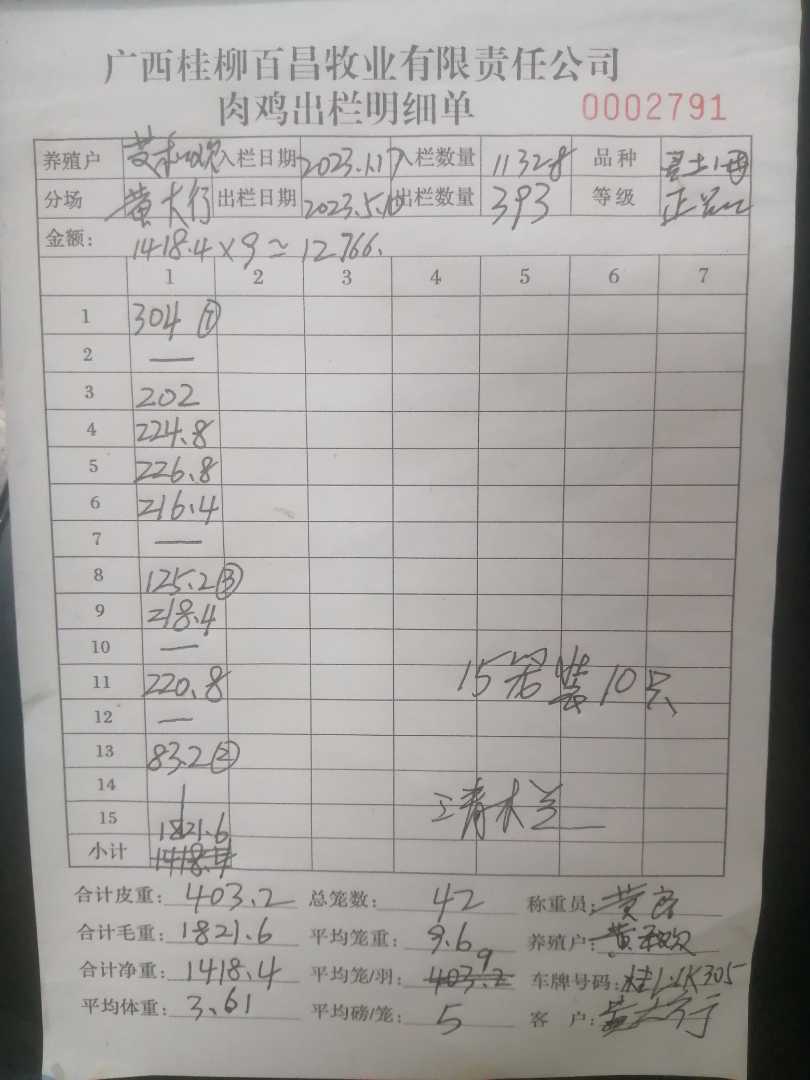 广西桂柳百昌牧业有限责任公司
肉鸡出栏明细单 0002791
养殖户 黄 入栏日期 2023.1.17 入栏数量 11328 品种 土
分场 黄大行 出栏日期 2023.5.10 出栏数量 393 等级 正
金额: 1418.4×9≈12766.
1 2 3 4 5 6 7
1 304 ①
2 —
3 202
4 224.8
5 226.8
6 216.4
7 —
8 125.2 ③
9 218.4
10 —
11 220.8 15 装10只
12 —
13 83.2 ②
14
15 1821.6 青木兰
小计 1418.4
合计皮重: 403.2 总笼数: 42 称重员: 黄
合计毛重: 1821.6 平均笼重: 9.6 养殖户: 黄
合计净重: 1418.4 平均笼/羽: 403.2 9 车牌号码: 桂L·1K305
平均体重: 3.61 平均磅/笼: 5 客 户: 黄大行